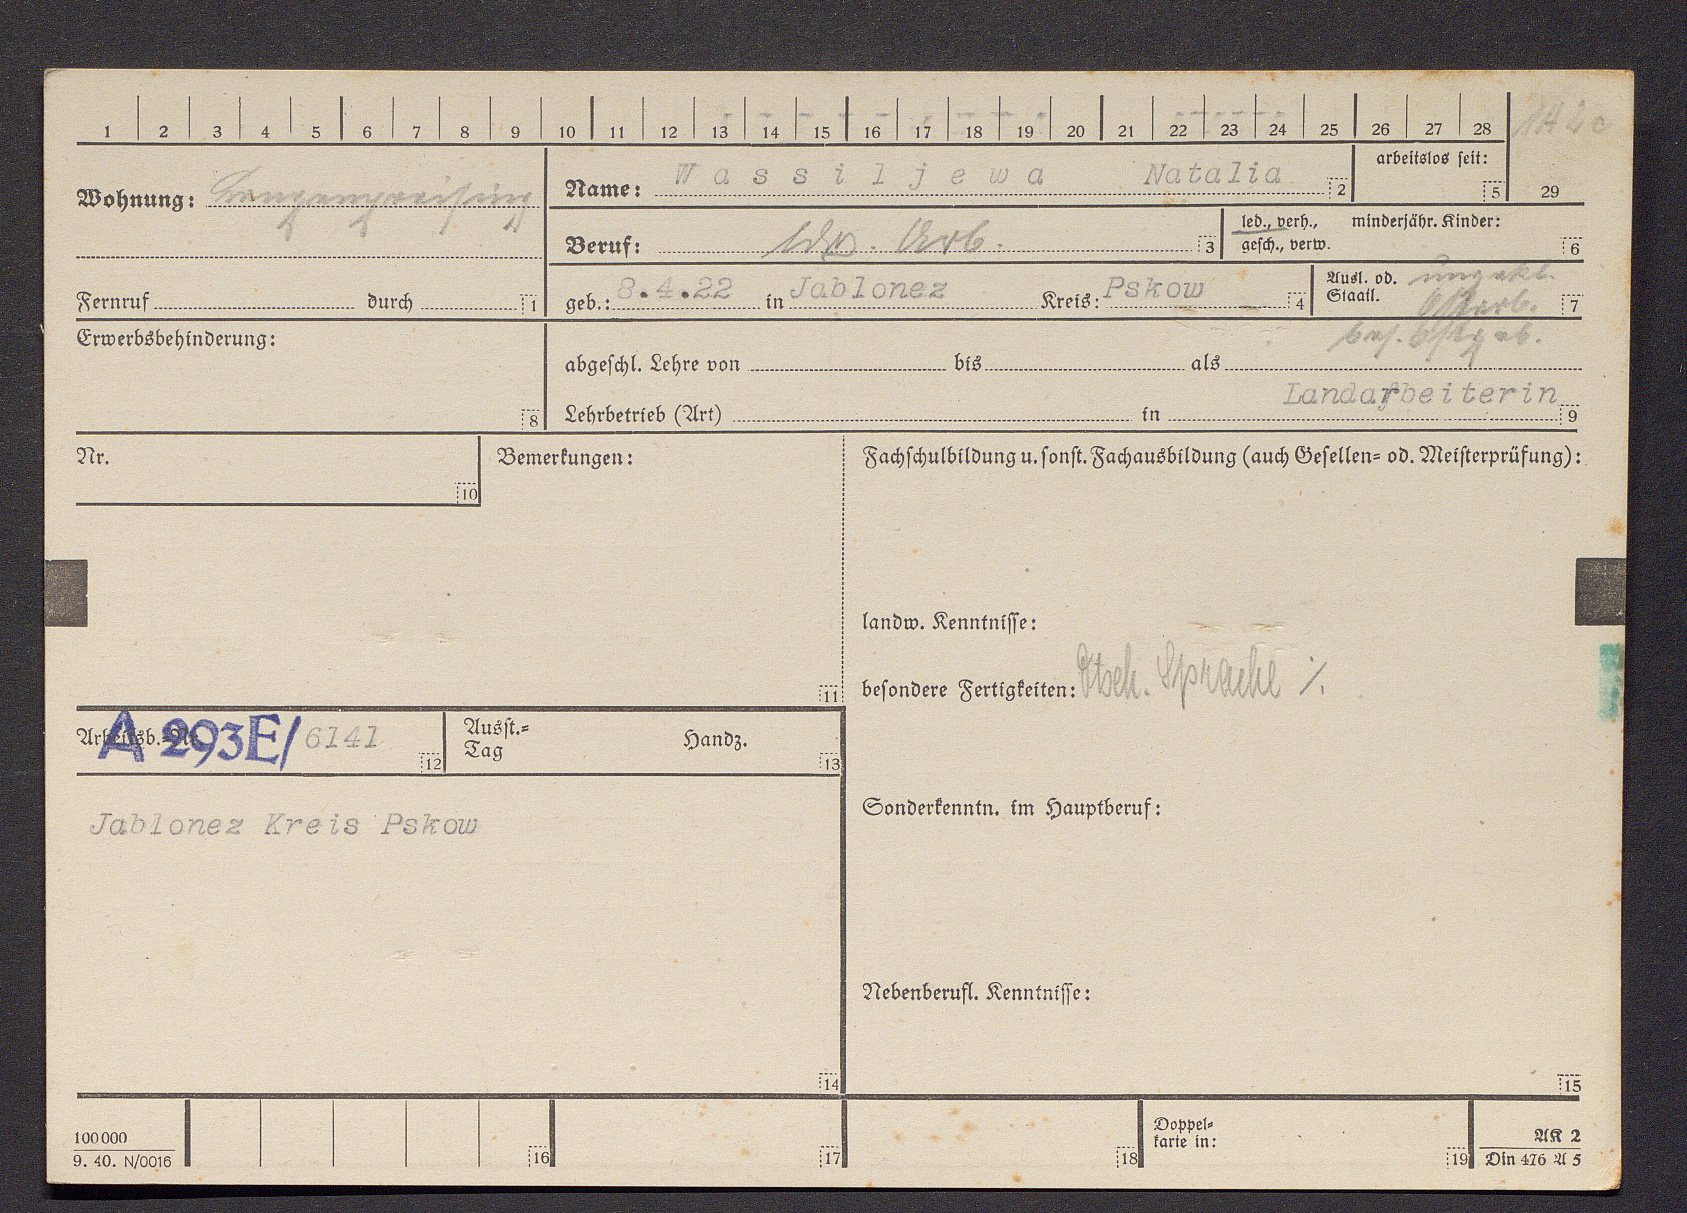 1 2 3 4 5 6 7 8 9 10 11 12 13 14 15 16 17 18 19 20 21 22 23 24 25 26 27 28
1A 2c
29
Wohnung: Langenpreising
Name: Wassiljewa Natalia 2
arbeitslos seit: 5
Beruf: ldw. Arb. 3
led., verh., gesch., verw.
minderjähr. Kinder: 6
Fernruf durch 1
geb.: 8.4.22 in Jablonez Kreis: Pskow 4
Ausl. od. Staatl. ungekl. 7
Ostarb.
bes. Ostgeb.
Erwerbsbehinderung: 8
abgeschl. Lehre von bis als
Landarbeiterin
Lehrbetrieb (Art) in 9
Nr. 10
Bemerkungen: 11
Fachschulbildung u. sonst. Fachausbildung (auch Gesellen= od. Meisterprüfung):
landw. Kenntnisse:
besondere Fertigkeiten: Dtsch. Sprache %.
Arbeitsb.=Nr. A 293E/6141 12
Ausst.=Tag Handz. 13
Jablonez Kreis Pskow
14
Sonderkenntn. im Hauptberuf:
Nebenberufl. Kenntnisse:
15
100000
9. 40. N/0016
16 17 18
Doppel=
karte in: 19
AK 2
Din 476 A 5